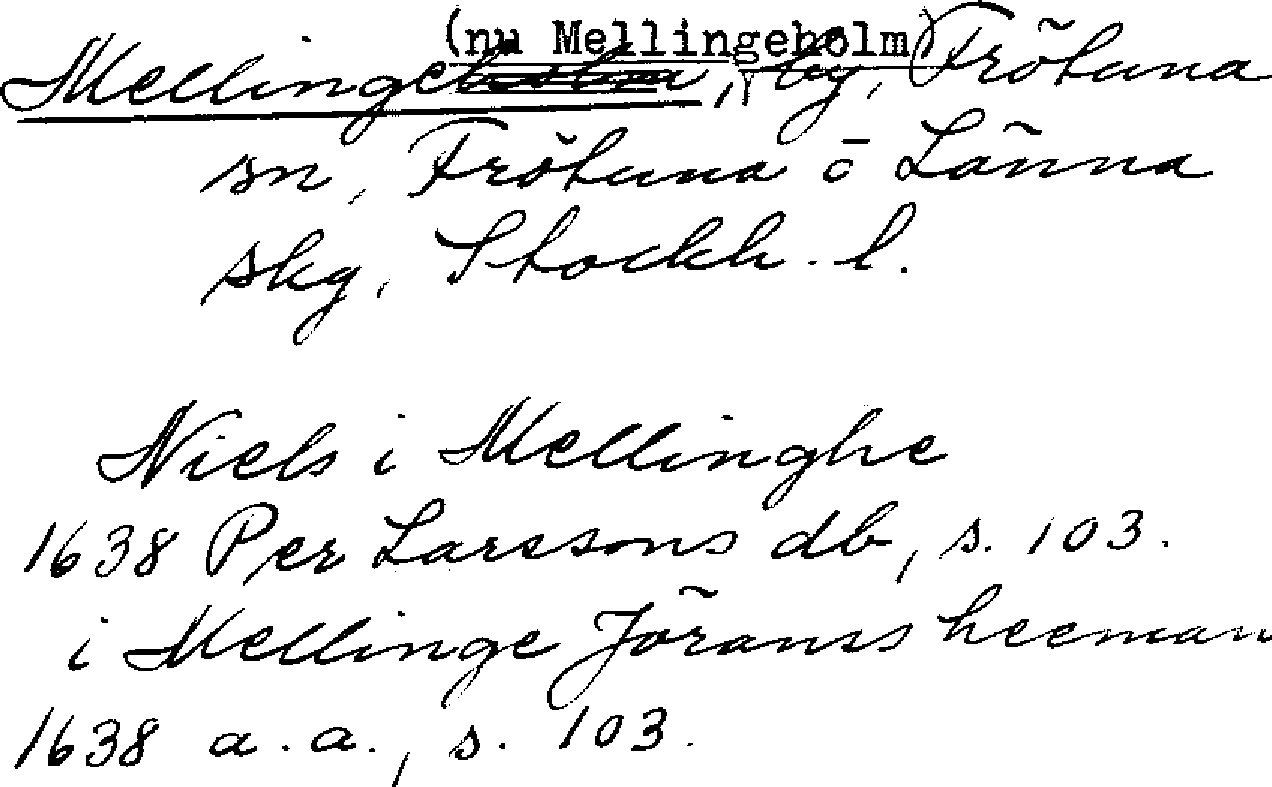 (nu Mellingeholm)
Mellingeholm, by, Frötuna
sn, Frötuna o Länna
skg, Stockh. l.
Niels i Mellinghe
1638 Per Larssons db, s. 103.
i Mellinge Jöranss heeman
1638 a.a., s. 103.